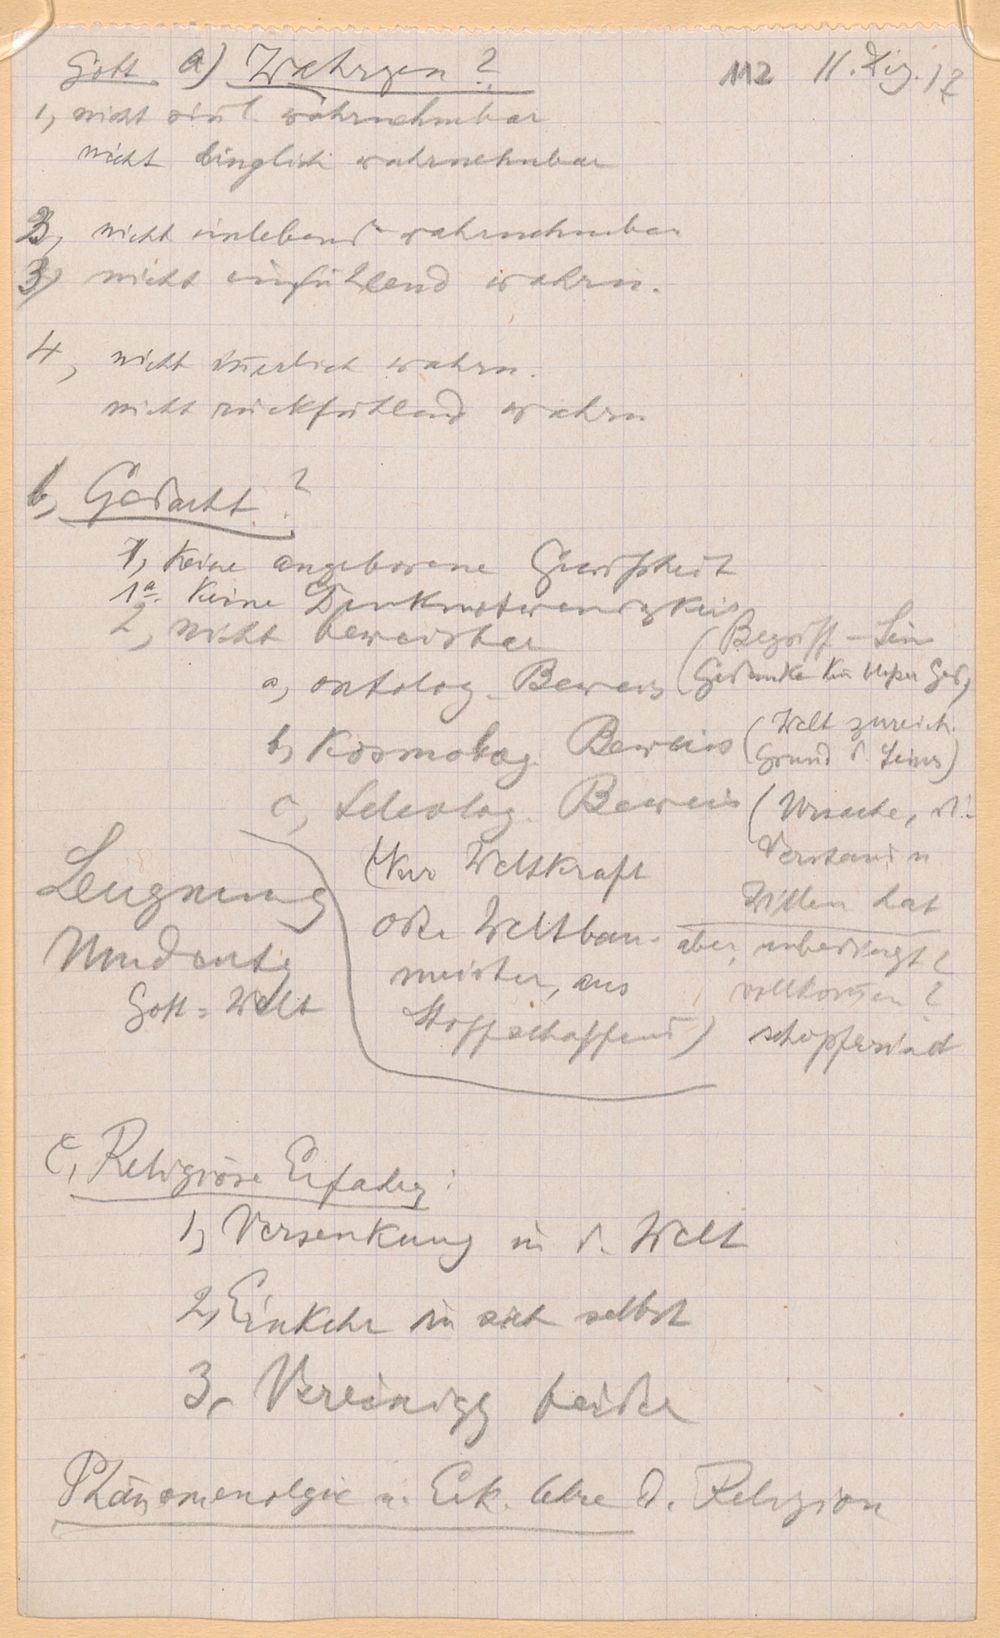 Gott. a) Wahrgen? 112 11. Dez. 17
1, nicht sinnl wahrnehmbar
nicht dinglich wahrnehmbar
2, nicht einlebend wahrnehmbar
3) nicht einfühlend wahrn.
4, nicht innerlich wahrn.
nicht rückfühlend wahrn
b, Gedacht?
1, Keine angeborene Gewissheit
1a. Keine Denknotwendigkeit
2, nicht beweisbar (Begriff – Sein
a, ontolog. Beweis Gedanke kein blosser Ged,)
b, Kosmolog. Beweis (Welt zureich.
Grund d. Seins)
c, teleolog. Beweis (Ursache, die
Verstand u
Willen hat
(Nur Weltkraft
oder Weltbau- aber, unbedingt?
meister, aus vollkommen?
Stoff schaffend) schöpferisch
Leugnung
Umdeutg
Gott = Welt
c, Religiöse Erfahrg:
1, Versenkung in d. Welt
2, Einkehr in sich selbst
3, Vereinigg beider
Phänomenolgie u. Erk. lehre d. Religion